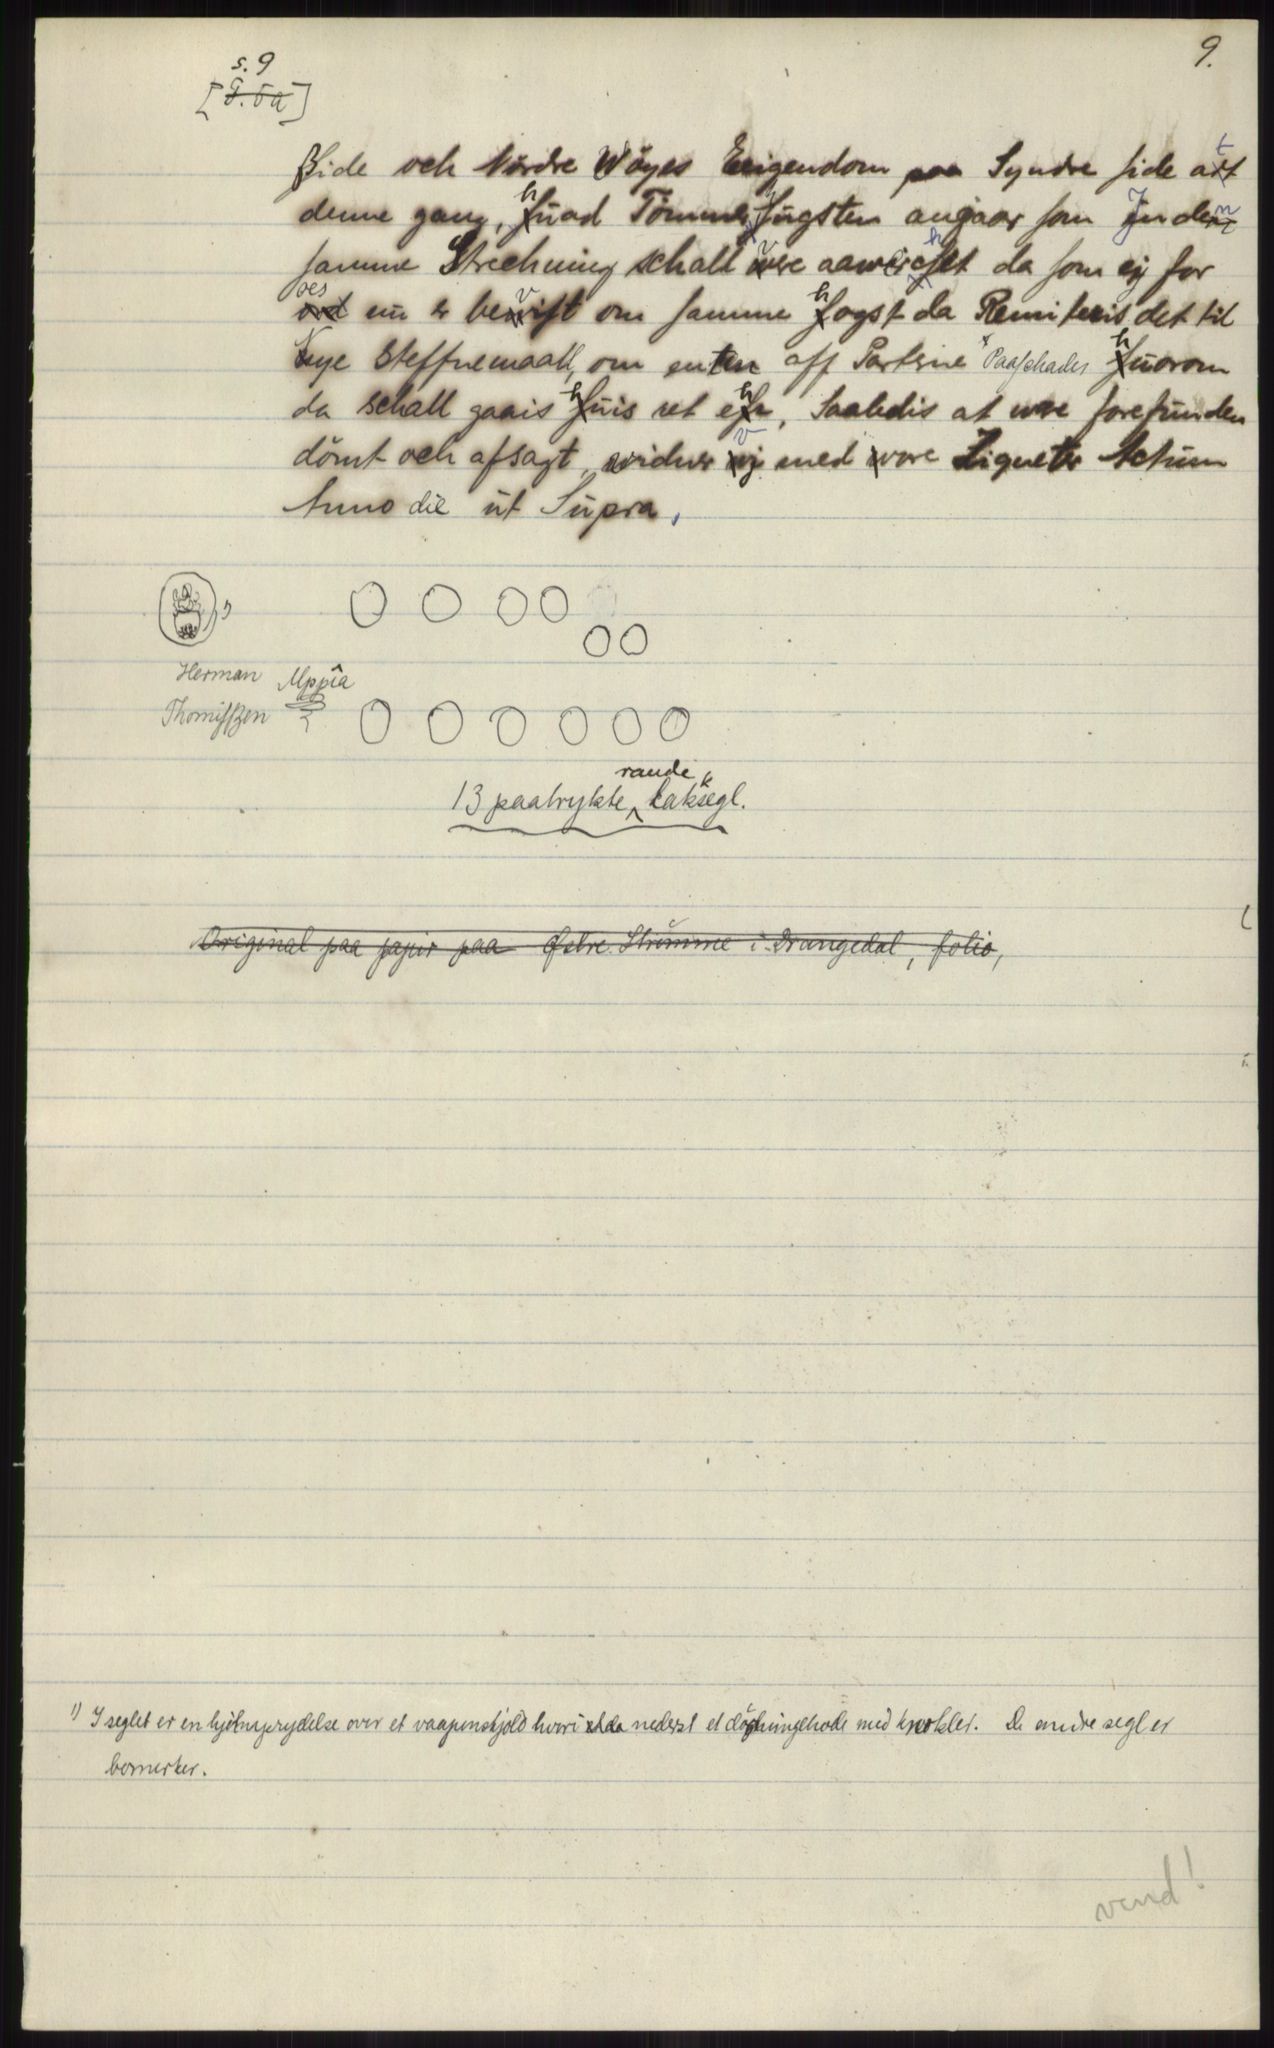 9.
s. 9
[F. 5a]
Side och Nordre Wöyes Eeigendom paa Syndre side att
denne gang, huad Tömmer hugsten angaar som Jnden
samme Strechning schall vere aawirchet da som ej for
nu er bevist om samme hogst da Remiteris det til
Nye Steffnemaall, om enten aff Parterne Paaschader huorom
da schall gaais huis ret ehr, Saaledis at were forefunden
dömt och afsagt, widner vj med vore Zigneter Actum
Anno die ut Supra.
1)
Herman Mppia
Thomiszen
raude
13 paatrykte laksegl.
Original paa papir paa Østre Strømme i Drangedal, folio,
1) I seglet er en hjelmprydelse over et vaapenskjold hvori nederst et dödninghode med knokler. De andre segl er
bomerker.
vend!